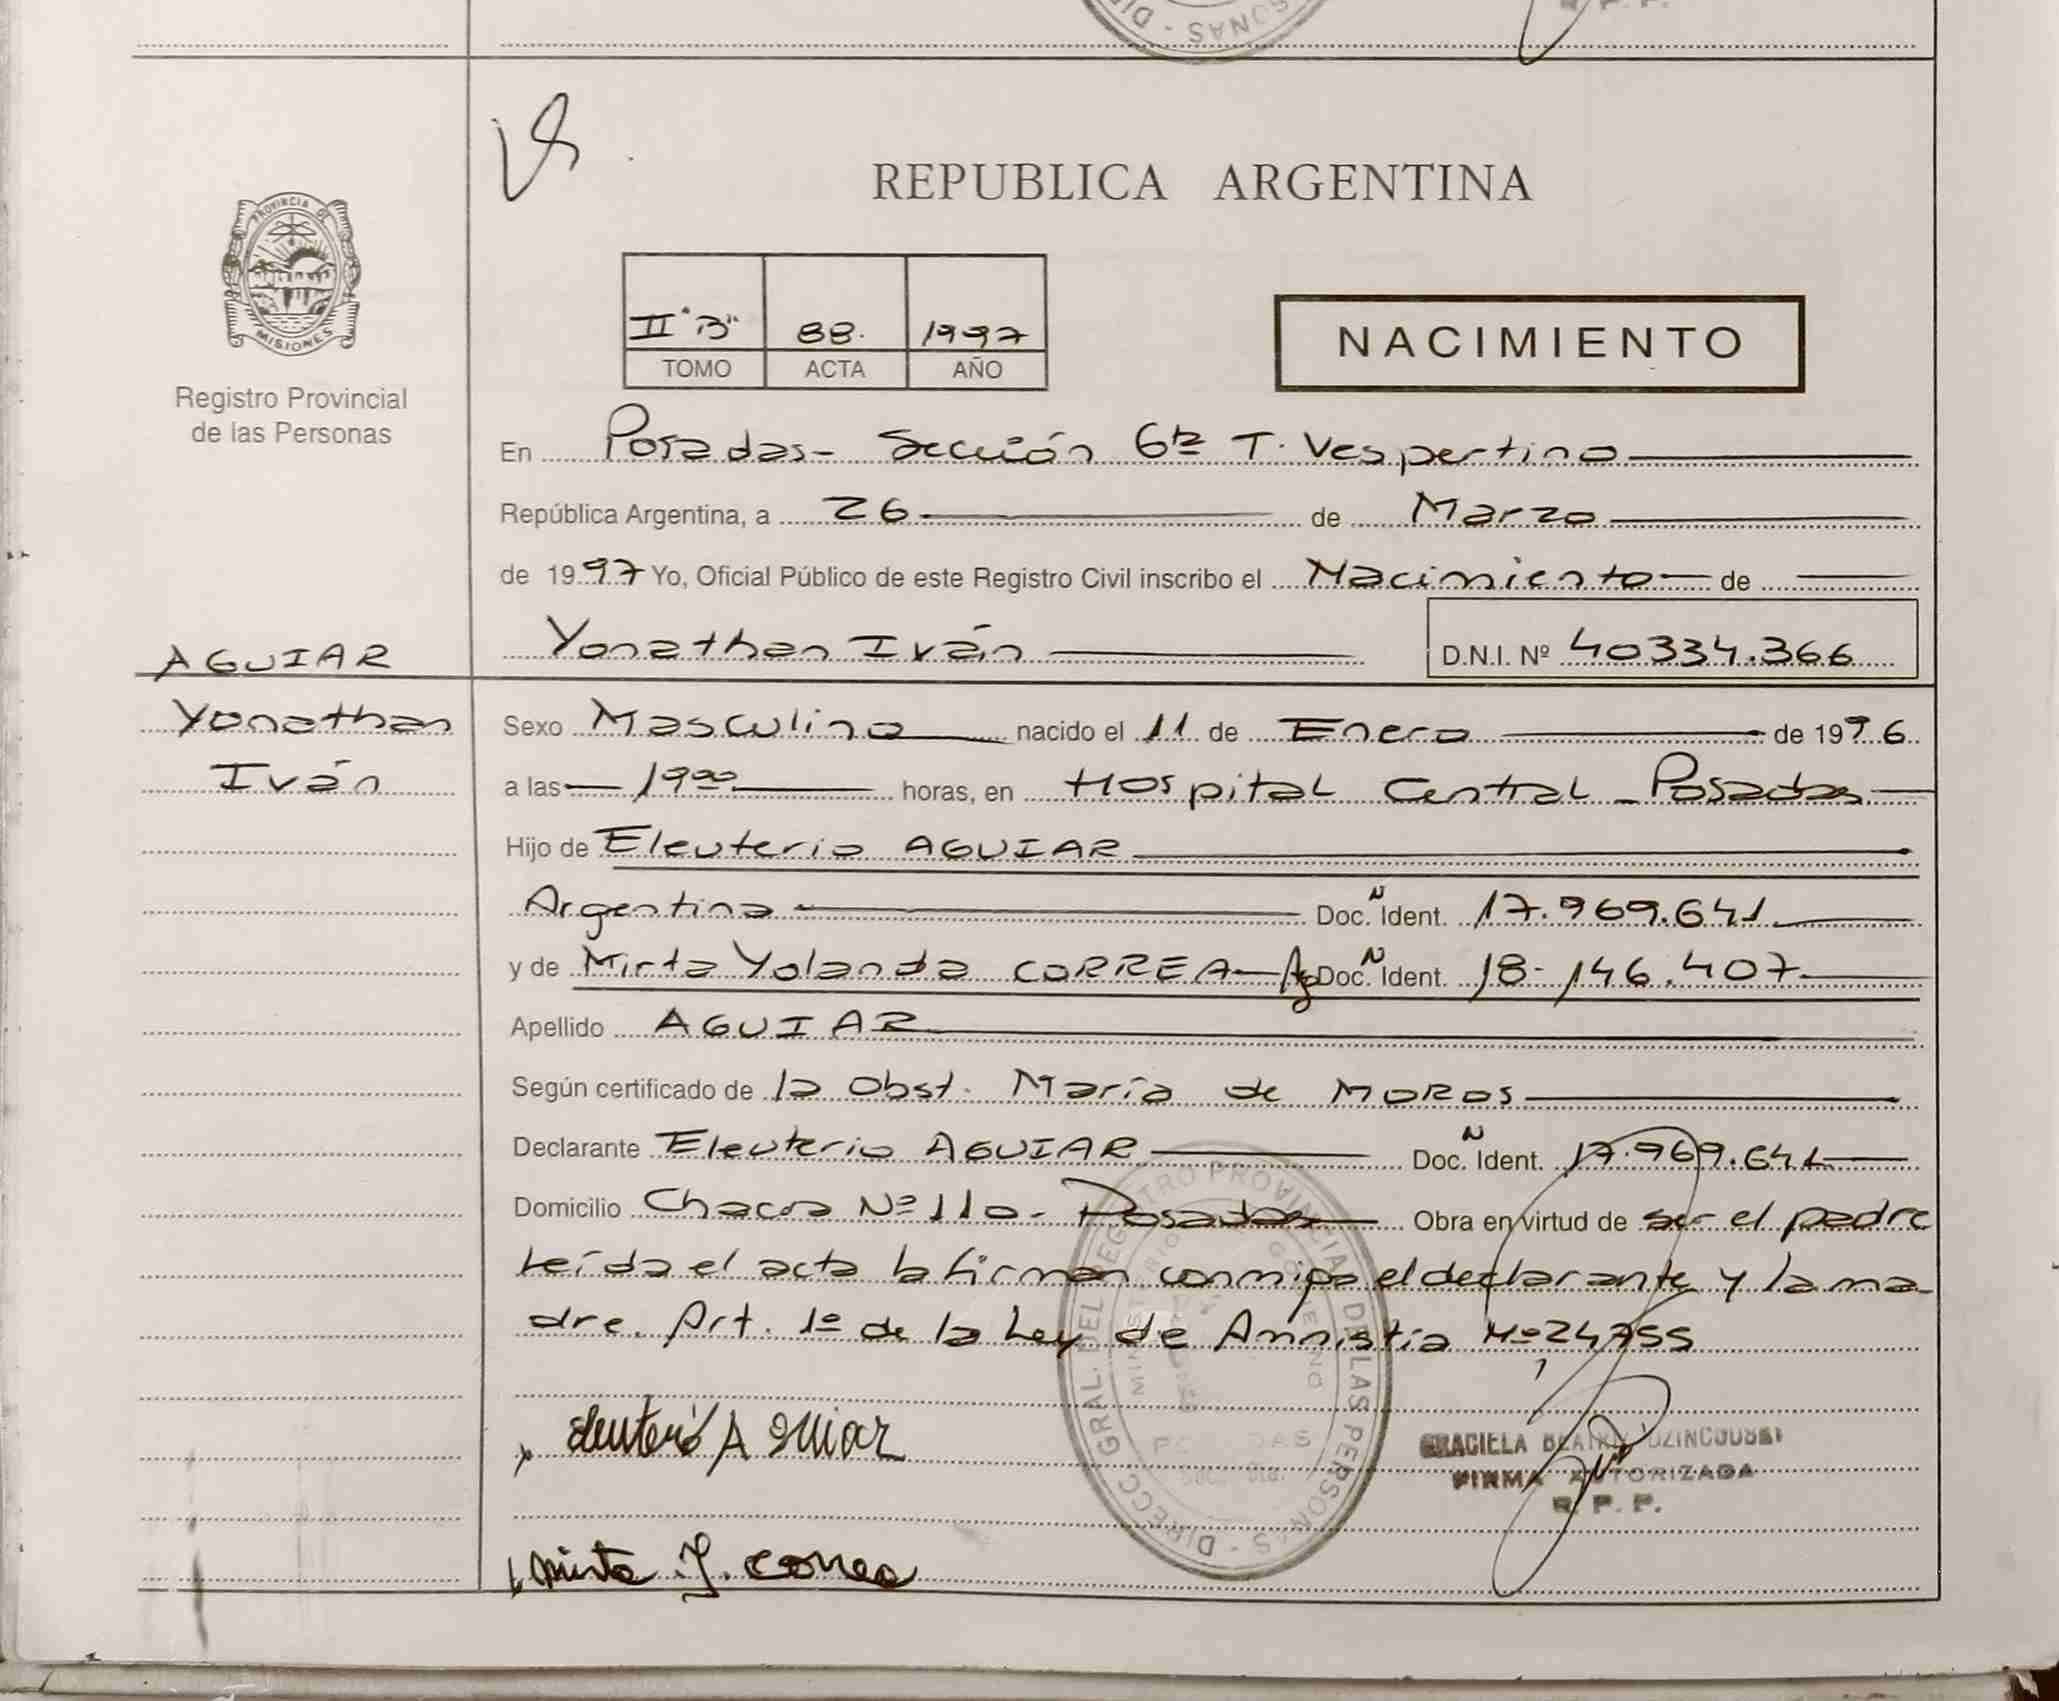 REPUBLICA ARGENTINA
PROVINCIA DE
MISIONES
Registro Provincial
de las Personas
II "B" 88. 1997
TOMO ACTA AÑO
NACIMIENTO
En Posadas- Sección 6ta T. Vespertino
República Argentina, a 26 de Marzo
de 1997 Yo, Oficial Público de este Registro Civil inscribo el Nacimiento de
AGUIAR
Yonathan Iván D.N.I. Nº 40334.366
Yonathan
Iván
Sexo Masculino nacido el 11 de Enero de 1996
a las 19 00 horas, en Hospital Central - Posadas
Hijo de Eleuterio AGUIAR
Argentina Doc. Ident. 17.969.641
y de Mirta Yolanda CORREA Doc. Ident. 18.146.407
Apellido AGUIAR
Según certificado de la Obst. María de MOROS
Declarante Eleuterio AGUIAR Doc. Ident. 17.969.641
Domicilio Chacra Nº 110- Posadas Obra en virtud de ser el padre
Leída el acta la firman conmigo el declarante y la ma-
dre. Art. 1º de la Ley de Amnistía Nº 24755
Eleuterio Aguiar
GRACIELA BEATRIZ
FIRMA AUTORIZADA
R. P. P.
Mirta Y. Correa
DIRECC GRAL. DEL REGISTRO PROVINCIAL DE LAS PERSONAS -
MINISTERIO GOBIERNO
POSADAS